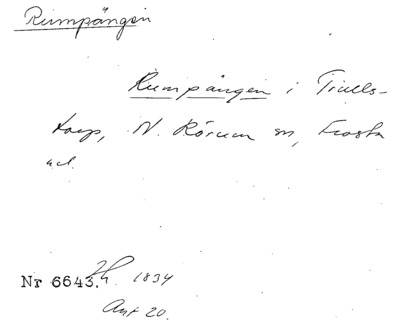 Rumpängen
Rumpängen i Truls-
torp, N. Rörum sn, Frosta
hd.
Nr 6643. 1834
Akt 20.